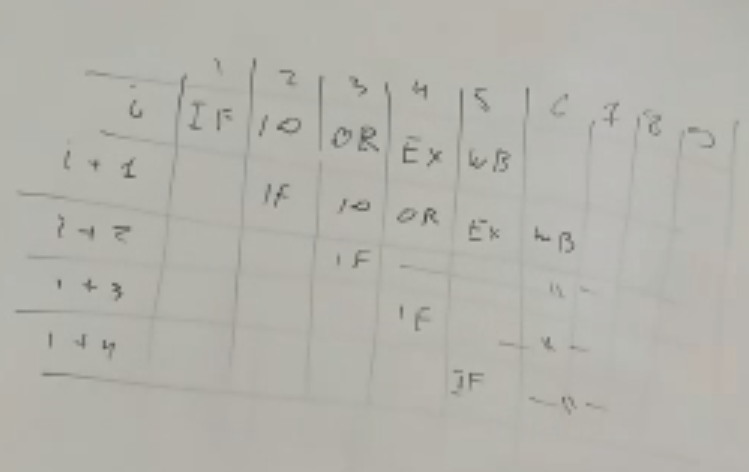 1 2 3 4 5 6 7 8 9
i IF ID OR Ex WB
i + 1 IF ID OR Ex WB
i + 2 IF — " —
i + 3 IF — " —
i + 4 IF — " —